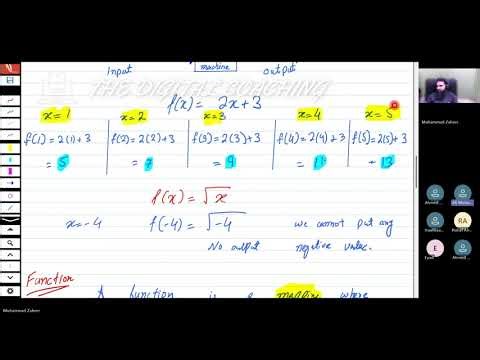 input machine output
THE DIGITAL COACHING
f(x) = 2x+3
x=1 x=2 x=3 x=4 x=5
f(1) = 2(1)+3 f(2) = 2(2)+3 f(3) = 2(3)+3 f(4) = 2(4)+3 f(5) = 2(5)+3
= 5 = 7 = 9 = 11 + 13
f(x) = √x
x=-4 f(-4) = √-4 we cannot put any
No output negative value.
Function
A function is a mapping where
Muhammad Zaheer
Muhammad Zaheer
RA
E
Eyad